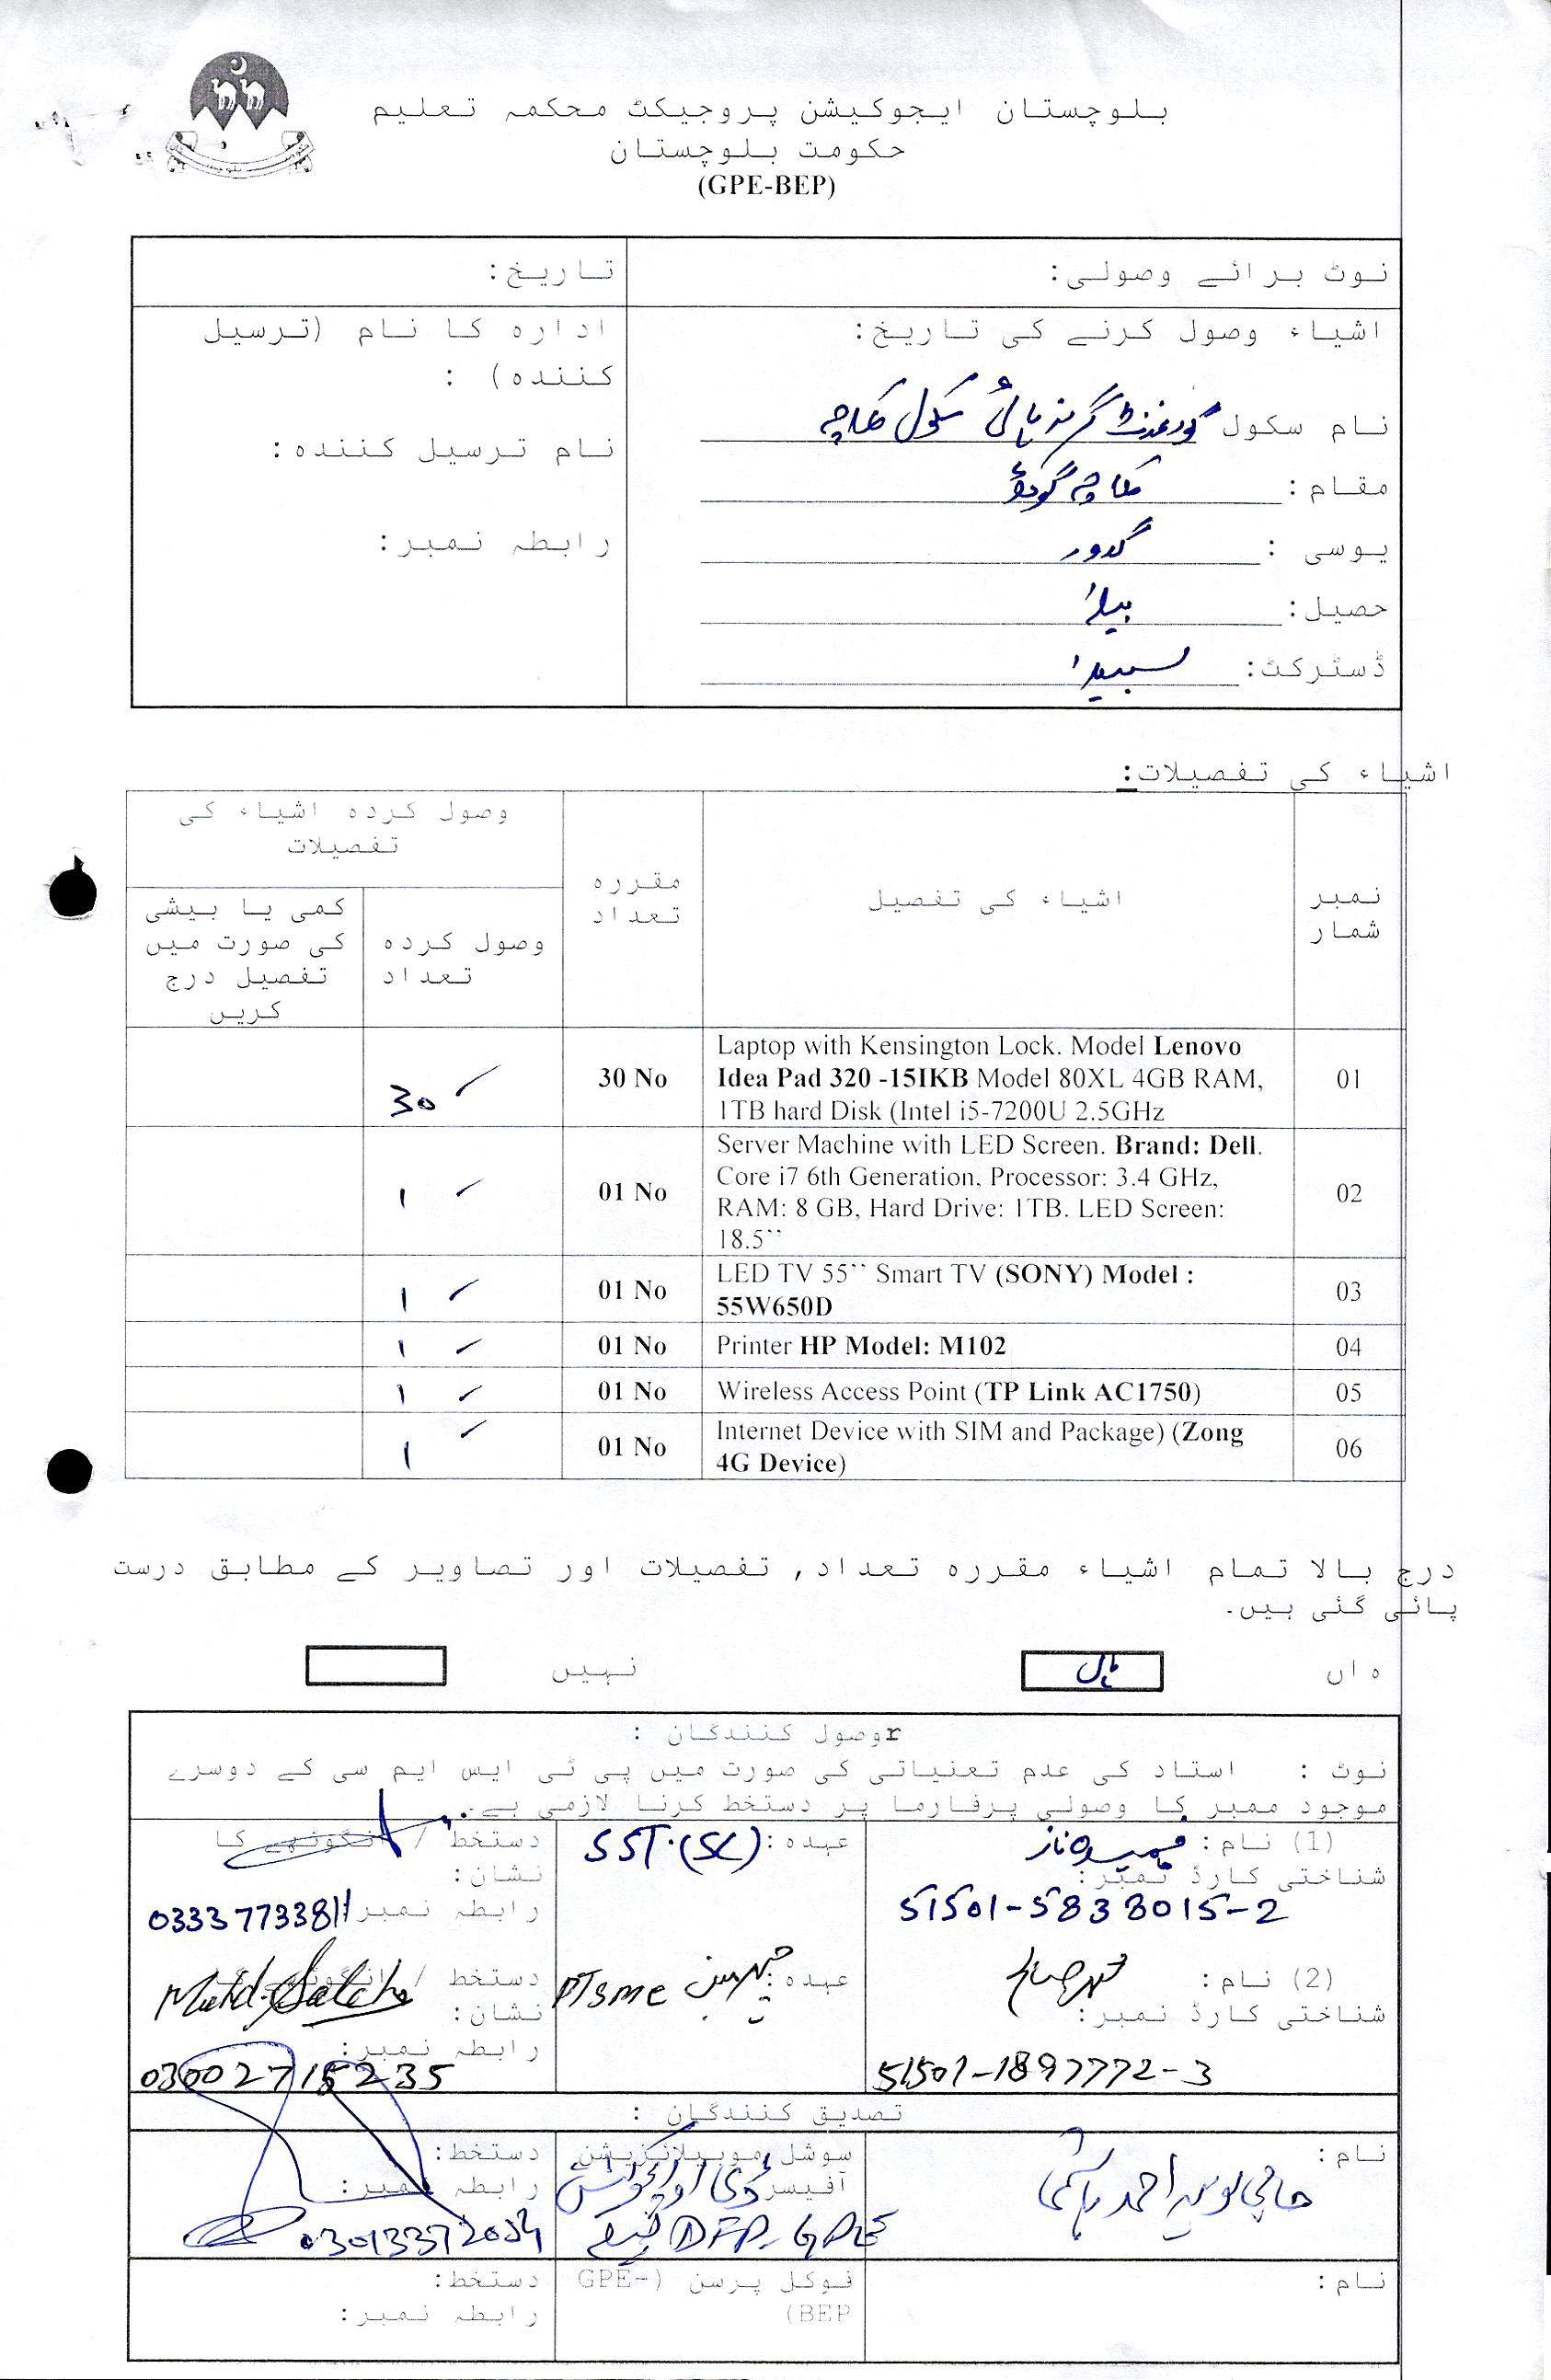 بلوچستان ایجوکیشن پروجیکٹ محکمہ تعلیم
حکومت بلوچستان
(GPE-BEP)
نوٹ برائے وصولی:
تاریخ:
اشیاء وصول کرنے کی تاریخ:
نام سکول گورنمنٹ گرلز ہائی سکول
مقام:
یوسی :
حصیل: بیلا
ڈسٹرکٹ: لسبیلا
ادارہ کا نام (ترسیل
کنندہ) :
نام ترسیل کنندہ:
رابطہ نمبر:
اشیاء کی تفصیلات:
نمبر شمار
اشیاء کی تفصیل
مقررہ تعداد
وصول کردہ اشیاء کی تفصیلات
وصول کردہ تعداد
کمی یا بیشی کی صورت میں تفصیل درج کریں
01
Laptop with Kensington Lock. Model Lenovo
Idea Pad 320 -15IKB Model 80XL 4GB RAM,
1TB hard Disk (Intel i5-7200U 2.5GHz
30 No
30
02
Server Machine with LED Screen. Brand: Dell.
Core i7 6th Generation, Processor: 3.4 GHz,
RAM: 8 GB, Hard Drive: 1TB. LED Screen:
18.5``
01 No
1
03
LED TV 55`` Smart TV (SONY) Model :
55W650D
01 No
1
04
Printer HP Model: M102
01 No
1
05
Wireless Access Point (TP Link AC1750)
01 No
1
06
Internet Device with SIM and Package) (Zong
4G Device)
01 No
1
درج بالا تمام اشیاء مقررہ تعداد, تفصیلات اور تصاویر کے مطابق درست
پائی گئی ہیں.
ہاں
ہاں
نہیں
rوصول کنندگان :
نوٹ : استاد کی عدم تعنیاتی کی صورت میں پی ٹی ایس ایم سی کے دوسرے
موجود ممبر کا وصولی پرفارما پر دستخط کرنا لازمی ہے.
(1) نام:
شناختی کارڈ نمبر:
51501-5838015-2
عہدہ: SST.(SC)
دستخط / انگوٹھے کا
نشان:
رابطہ نمبر
(2) نام:
شناختی کارڈ نمبر:
51501-1897772-3
عہدہ: چیرمین
دستخط /
نشان:
رابطہ نمبر:
03002715235
تصدیق کنندگان :
نام:
سوشل موبیلائزیشن
آفیسر
دستخط:
رابطہ نمبر:
نام:
فوکل پرسن (GPE-
BEP)
دستخط:
رابطہ نمبر: